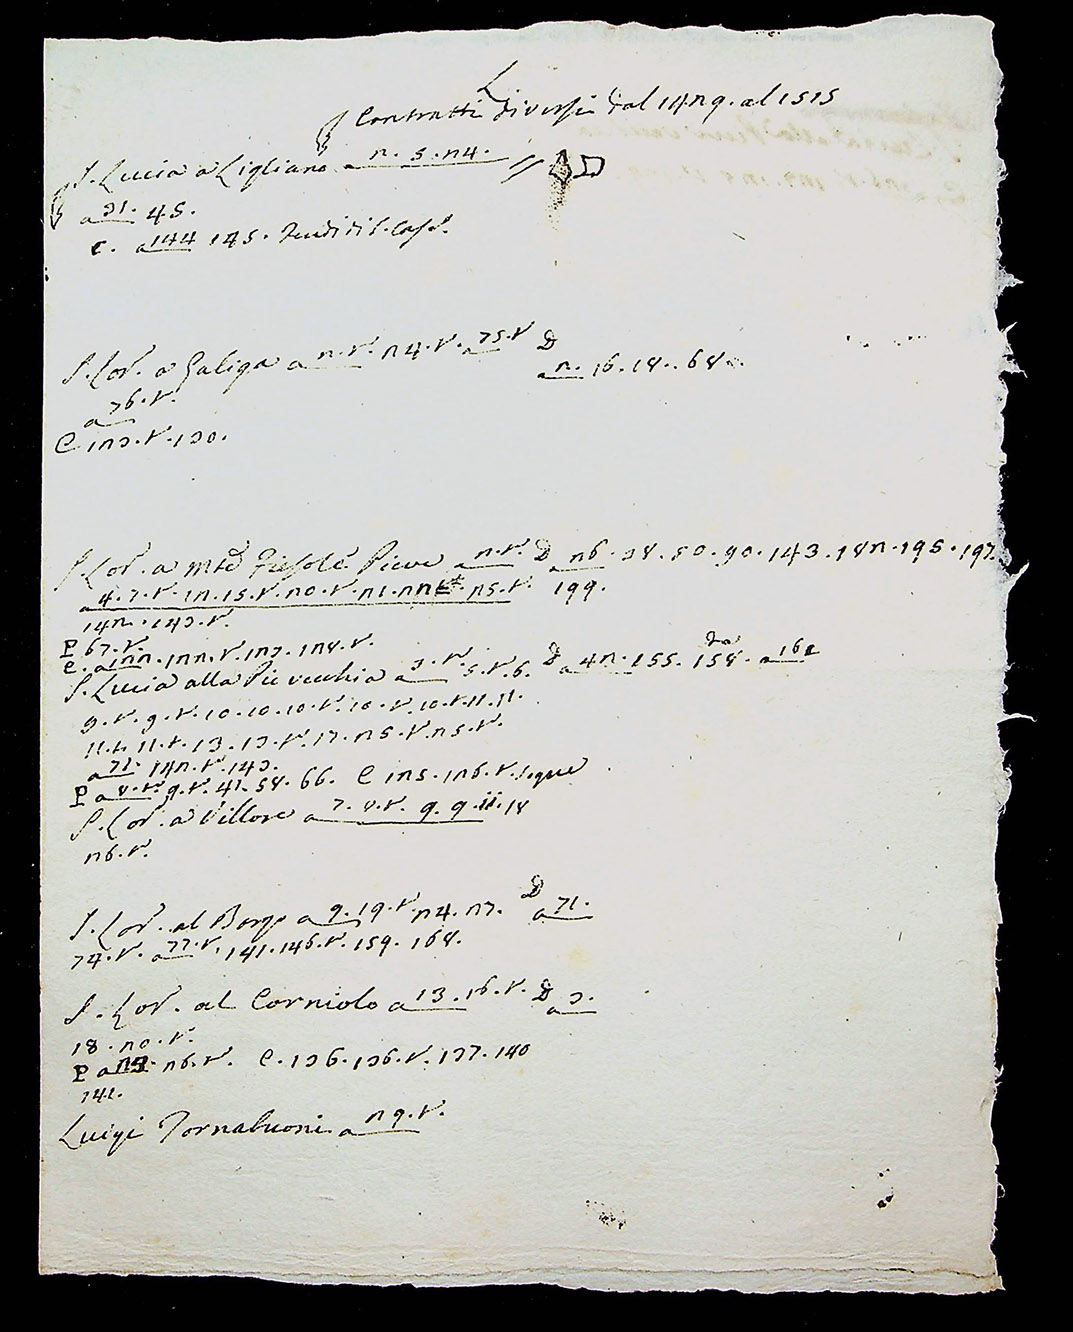 L
Contratti diversi dal 1429. al 1515
S. Lucia a Ligliano a 2. 5. 24. // D
a 31. 45.
C. a 144 145.
S. Lor. a Galiga a 2. v. 24. v. a 75. v D a 2. 16. 18.. 68.
a 76. v.
C 123. v. 130.
S. Lor. a Mte Fiesole Pieve a 2. v. D a 26. 38. 50. 90. 143. 182. 195. 197.
a 4. 7. v. 12. 15. v. 20. v. 21. 25. v. 199.
142. 143. v.
P 67. v.
C. a 122. 122. v. 123. 128. v.
S. Lucia alla Pievecchia a 3. v. 5. v. 6. D a 42. 155. 158. a 161
9. v. 9. v. 10. 10. 10. v. 10. v. 10. v. 11. 11.
11. v. 11. v. 13. 13. v. 17. 25. v. 25. v.
a 71. 142. v. 143.
P a 8. v. 9. v. 41. 58. 66. C 125. 126. v. segue
S. Lor. a Villore a 7. 8. v. 9. 9. 11. 18
26. v.
S. Lor. al Borgo a 9. 19. v 24. 27. D a 71.
74. v. a 77. v. 141. 146. v. 159. 168.
S. Lor. al Corniolo a 13. 16. v. D a 3.
18. 20. v.
P a 26. v. C. 136. 136. v. 137. 140
141.
Luigi Tornabuoni a 29. v.